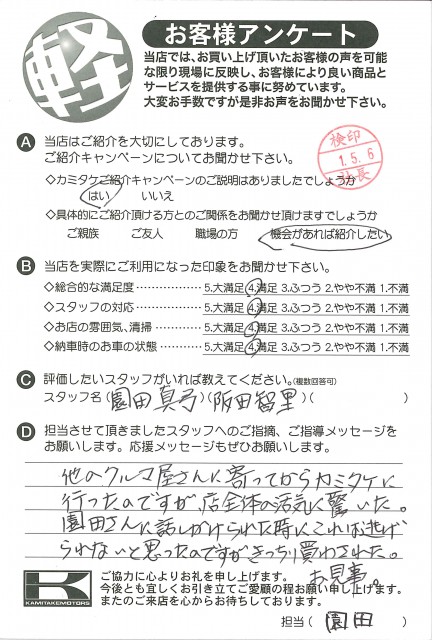 軽
お客様アンケート
当店では、お買い上げ頂いたお客様の声を可能
な限り現場に反映し、お客様により良い商品と
サービスを提供する事に努めています。
大変お手数ですが是非お声をお聞かせ下さい。
A 当店はご紹介を大切にしております。
ご紹介キャンペーンについてお聞かせ下さい。
検印
1.5.6
社長
◇カミタケご紹介キャンペーンのご説明はありましたでしょうか
はい いいえ
◇具体的にご紹介頂ける方とのご関係をお聞かせ頂けますでしょうか
ご親族 ご友人 職場の方 機会があれば紹介したい
B 当店を実際にご利用になった印象をお聞かせ下さい。
◇総合的な満足度 5.大満足 4.満足 3.ふつう 2.やや不満 1.不満
◇スタッフの対応 5.大満足 4.満足 3.ふつう 2.やや不満 1.不満
◇お店の雰囲気、清掃 5.大満足 4.満足 3.ふつう 2.やや不満 1.不満
◇納車時のお車の状態 5.大満足 4.満足 3.ふつう 2.やや不満 1.不満
C 評価したいスタッフがいれば教えてください。(複数回答可)
スタッフ名(園田真弓)(阪田智里)( )
D 担当させて頂きましたスタッフへのご指摘、ご指導メッセージを
お願いします。応援メッセージもぜひお願いします。
他のクルマ屋さんに寄ってからカミタケに
行ったのですが、店全体の活気に驚いた。
園田さんに話しかけられた時にこれは逃げ
られないと思ったのですがきっちり買わされた。
お見事。
K
KAMITAKEMOTORS
ご協力に心よりお礼を申し上げます。
今後とも宜しくお引き立てご愛顧の程お願い申し上げます。
またのご来店を心からお待ちしております。
担当(園田)